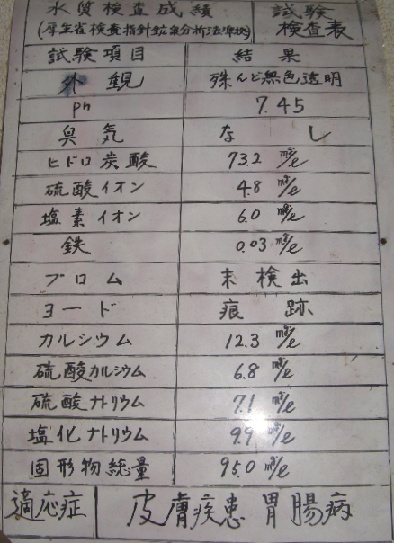 水質検査成績 試験
(厚生省検査指針鉱泉分析法準拠) 検査表
試験項目 結果
外観 殆んど無色透明
pH 7.45
臭気 なし
ヒドロ炭酸 73.2 mg/ℓ
硫酸イオン 4.8 mg/ℓ
塩素イオン 6.0 mg/ℓ
鉄 0.03 mg/ℓ
ブロム 未検出
ヨード 痕跡
カルシウム 12.3 mg/ℓ
硫酸カルシウム 6.8 mg/ℓ
硫酸ナトリウム 7.1 mg/ℓ
塩化ナトリウム 9.9 mg/ℓ
固形物総量 95.0 mg/ℓ
適応症 皮膚疾患 胃腸病